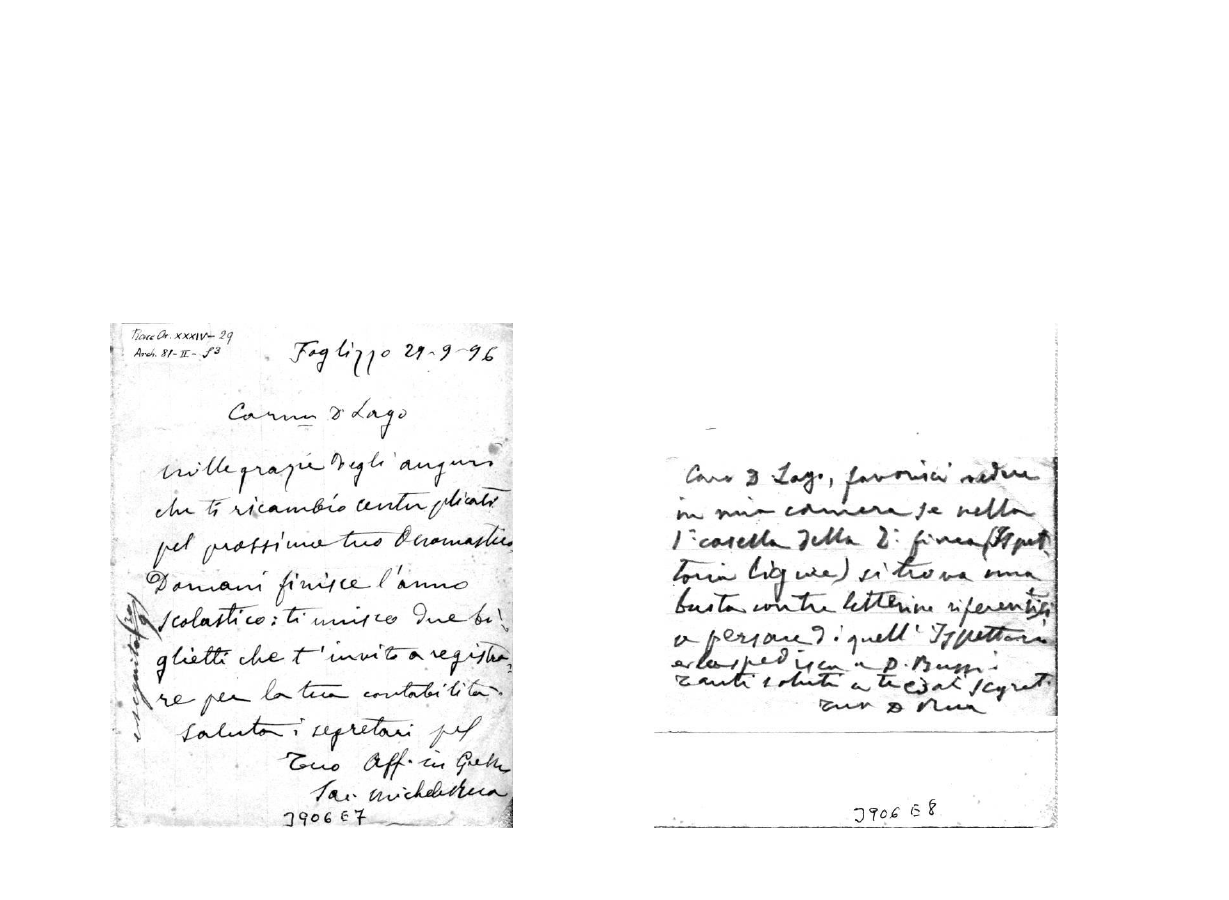 Arch. 81-II-
XXXIV-29
Foglizzo 29-9-96
D Lago
mille grazie degli auguri
che ti ricambio centuplicati
pel prossimo tuo Onomastico
Domani finisce l'anno
scolastico: ti unisco due bi-
glietti che t'invito a registra-
re per la tua contabilità.
Saluta i segretari pel
Tuo Aff. in
Sac. Michele Rua
eseguito
3906 E 7
Caro D Lago, favorisci vedere
in mia camera se nella
1a casella della 2a linea (Ispet
toria Ligure) si trova una
busta letterine riferentisi
a persone di quell' Ispettoria
e la spedisca a D.
Tanti saluti a te ed ai Segret.
Tuo D Rua
3906 E 8